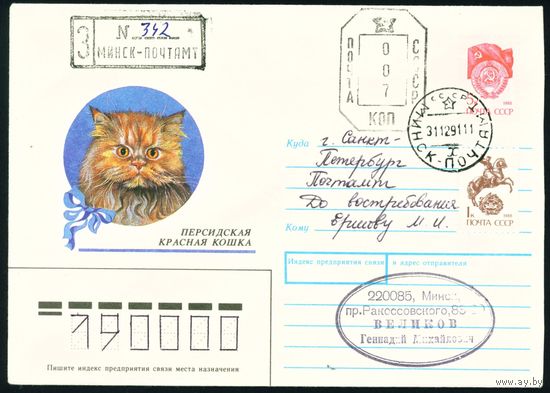 З № 342
МИНСК-ПОЧТАМТ
ПОЧТА СССР
007
КОП
ПОЧТА СССР 1988
МИНСК-ПОЧТАМТ
31129111
1к 1988
ПОЧТА СССР
ПЕРСИДСКАЯ
КРАСНАЯ КОШКА
Куда г. Санкт-
Петербург
Почтамт
До востребования
Кому М. И.
Индекс предприятия связи и адрес отправителя
220085, Минск,
пр.Рокоссовского,
ВЕЛИКОВ
Геннадий Михайлович
190000
Пишите индекс предприятия связи места назначения
www.ay.by